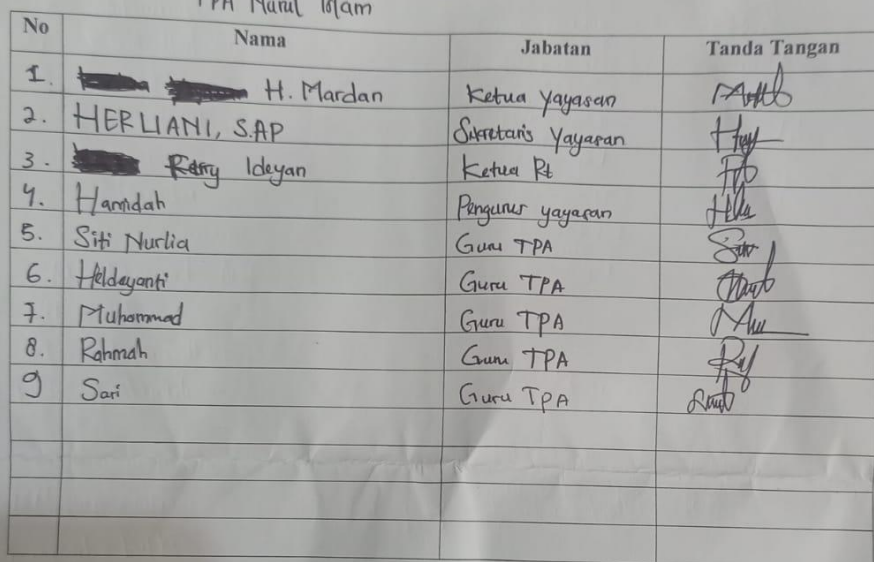 TPA Nurul Islam
No Nama Jabatan Tanda Tangan
1. H. Mardan Ketua Yayasan
2. HERLIANI, S.AP Sekretaris Yayasan
3. Ideyan Ketua Rt
4. Hamidah Pengurus yayasan
5. Siti Nurlia Guru TPA
6. Heldayanti Guru TPA
7. Muhammad Guru TPA
8. Rahmah Guru TPA
9 Sari Guru TPA